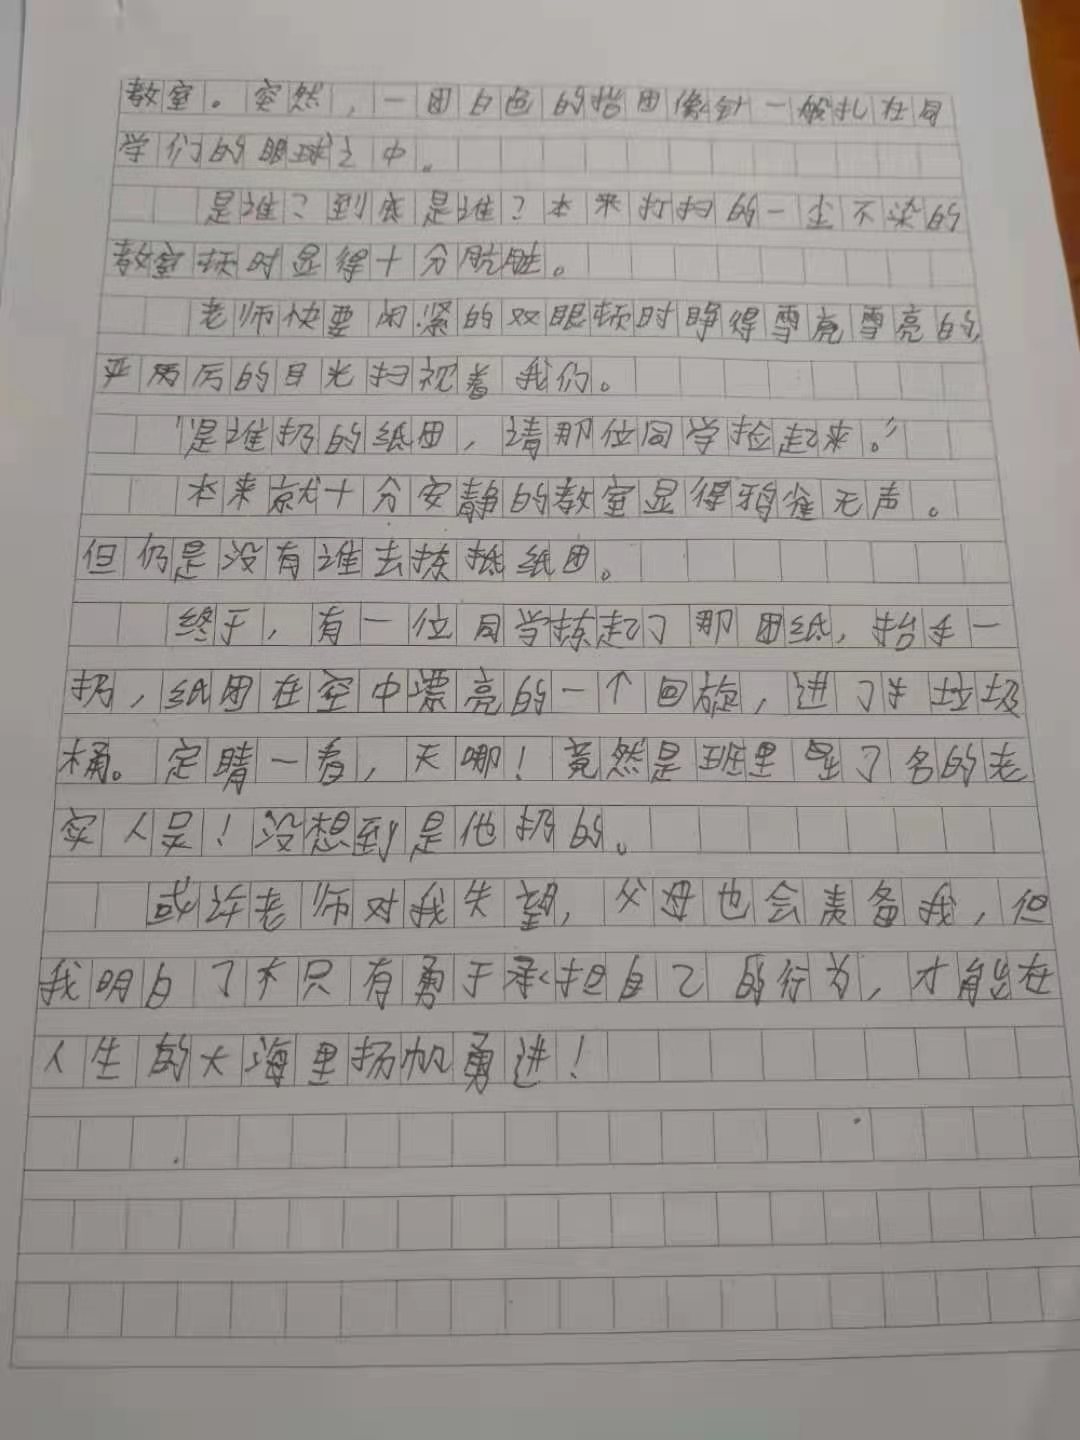 教室。突然,一团白色的指团像针一般扎在同
学们的眼球之中。
是谁?到底是谁?本来打扫的一尘不染的
教室顿时显得十分肮脏。
老师快要闭紧的双眼顿时睁得雪亮雪亮的,
严厉厉的目光扫视着我们。
“是谁扔的纸团,请那位同学捡起来。”
本来就十分安静的教室显得鸦雀无声。
但仍是没有谁去拣抵纸团。
终于,有一位同学拣起了那团纸,抬手一
扔,纸团在空中漂亮的一个回旋,进了垃圾
桶。定睛一看,天哪!竟然是班里出了名的老
实人吴!没想到是他扔的。
或许老师对我失望,父母也会责备我,但
我明白了只有勇于承担自己的行为,才能在
人生的大海里扬帆勇进!